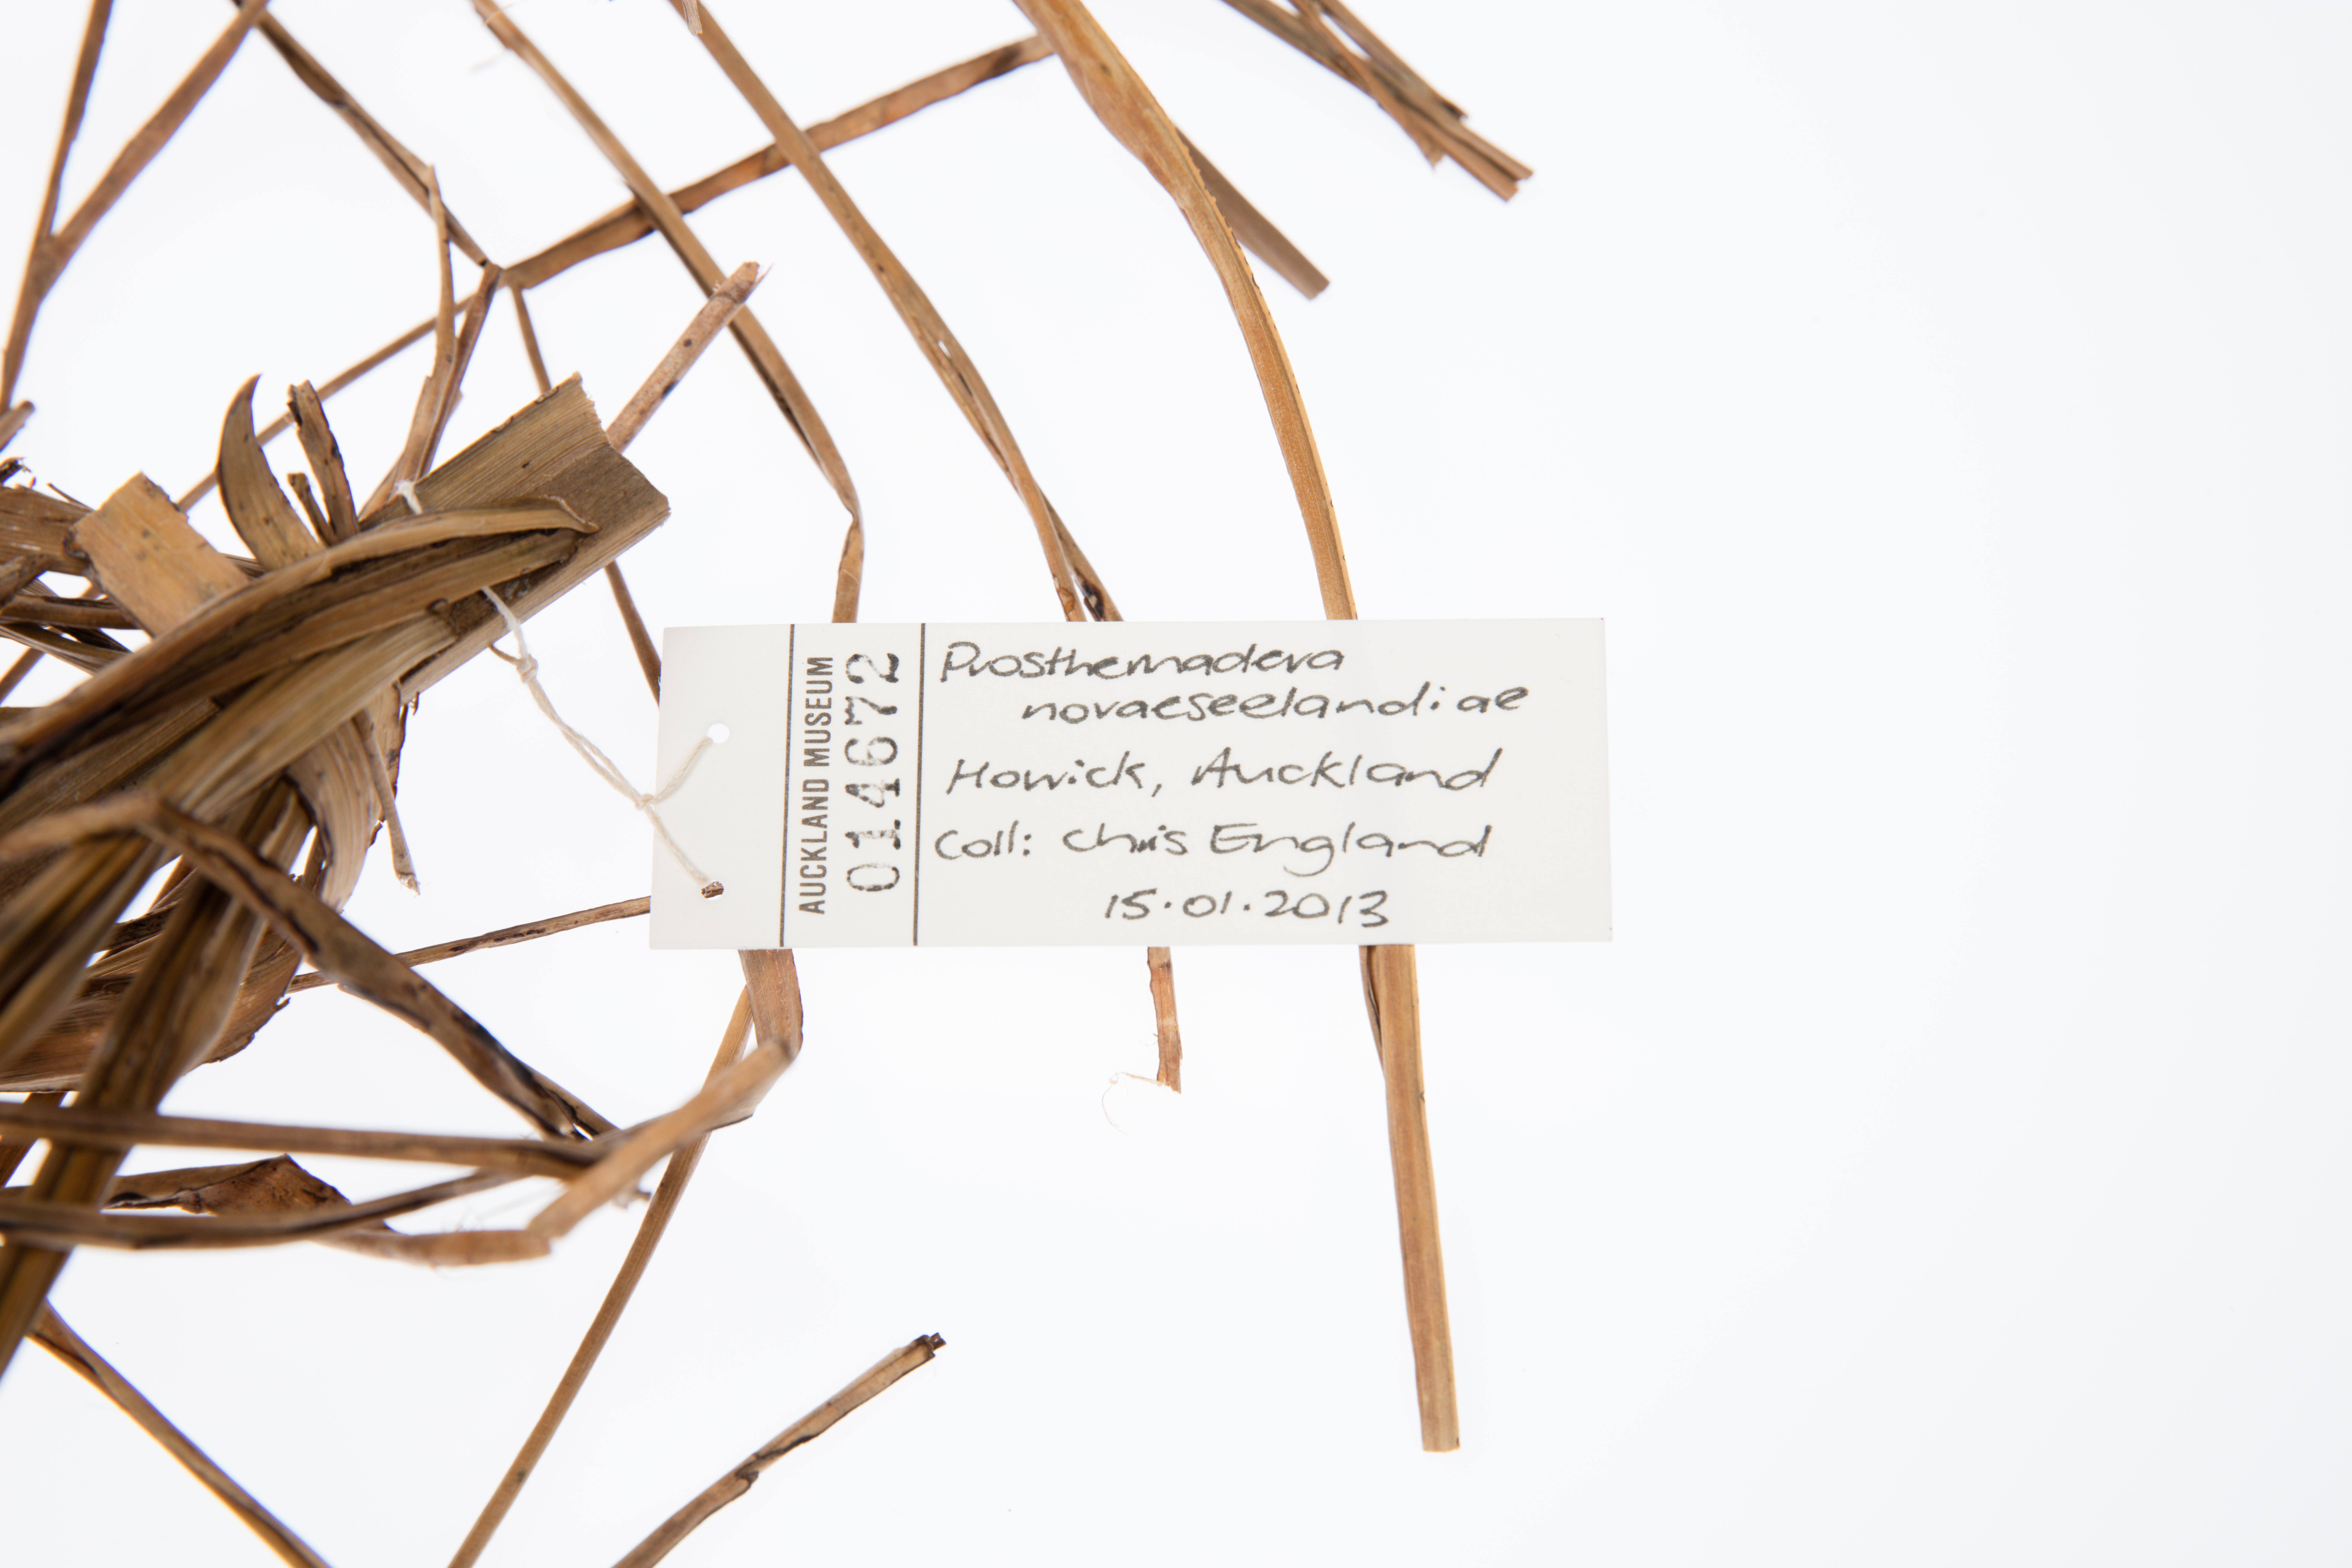 AUCKLAND MUSEUM
014672
Prosthemadera
novaeseelandiae
Howick, Auckland
Coll: Chris England
15.01.2013